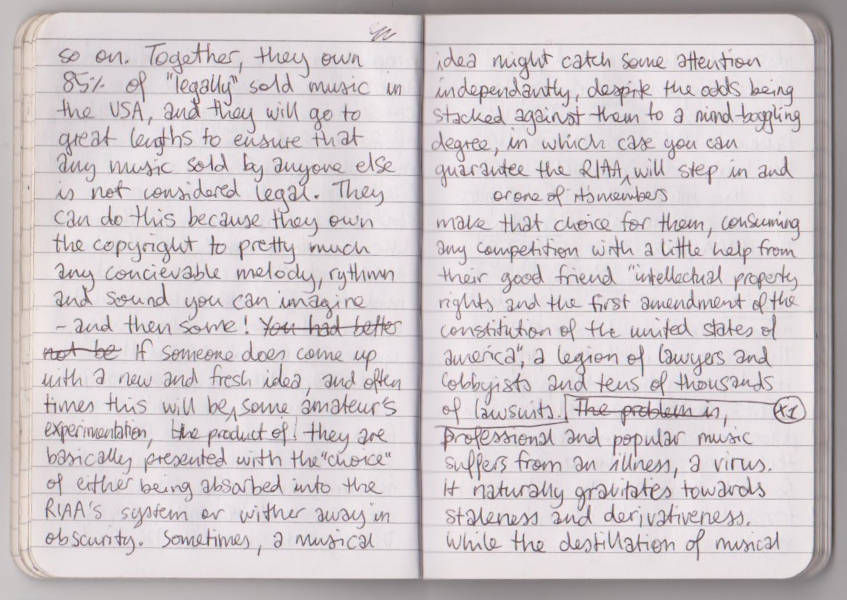 so on. Together, they own
85% of "legally" sold music in
the USA, and they will go to
great lengths to ensure that
any music sold by anyone else
is not considered legal. They
can do this because they own
the copyright to pretty much
any concievable melody, rythmn
and sound you can imagine
- and then some! You had better
not be If someone does come up
with a new and fresh idea, and often
times this will be, some amateur's
experimentation, the product of! they are
basically presented with the "choice"
of either being absorbed into the
RIAA's system or wither away in
obscurity. Sometimes, a musical
idea might catch some attention
independantly, despite the odds being
stacked against them to a mind-boggling
degree, in which case you can
guarantee the RIAA, will step in and
or one of its members
make that choice for them, consuming
any competition with a little help from
their good friend "intellectual property
rights and the first amendment of the
constitution of the united states of
america", a legion of lawyers and
lobbyists and tens of thousands
of lawsuits. The problem is, x1
professional and popular music
suffers from an illness, a virus.
It naturally gravitates towards
staleness and derivativeness.
While the destillation of musical